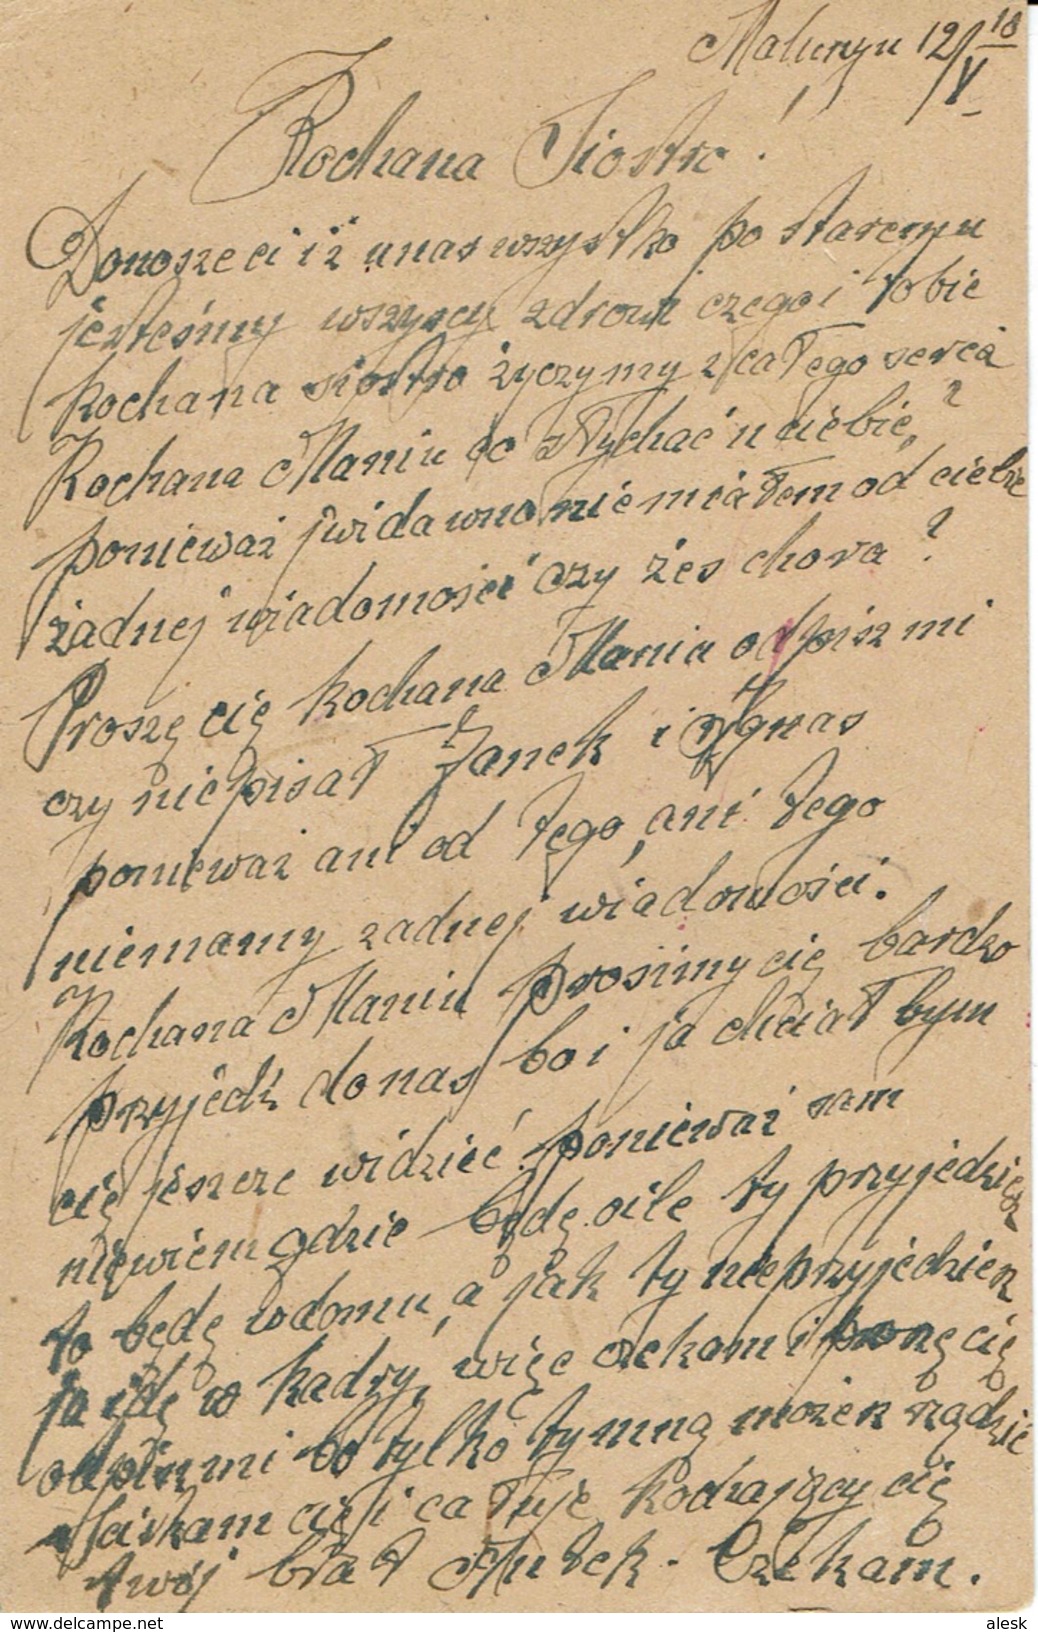 12/V 18
Kochana Siostro!
Donosze ci iż unas wszystko po staremu
jesteśmy wszyscy zdrowi czego i tobie
kochana siostro życzymy z całego serca
Kochana Maniu co słychać u ciebie?
ponieważ już dawno niemiałem od ciebie
żadnej wiadomości czy żeś chora?
Proszę cię kochana Maniu odpisz mi
czy niepisał Janek i Ignas
ponieważ ani od tego, ani tego
niemamy zadnej wiadomości.
Kochana Maniu prosimy cię bardzo
przyjedź do nas bo i ja chciał bym
cię jeszcze widzieć ponieważ sam
niewiem gdzie będę oile ty przyjedziesz
to będę wdomu, a jak ty nieprzyjedziesz
ja idę w kadry, więc czekam i proszę cię
odpisz mi bo tylko ty mną możesz rządzić
Sciskam cię i całuje kochający cię
twój brat Antek. Czekam.
alesk